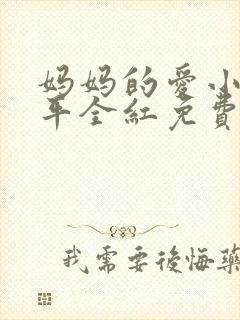 妈妈的爱小
平全紅免費
我需要後悔藥